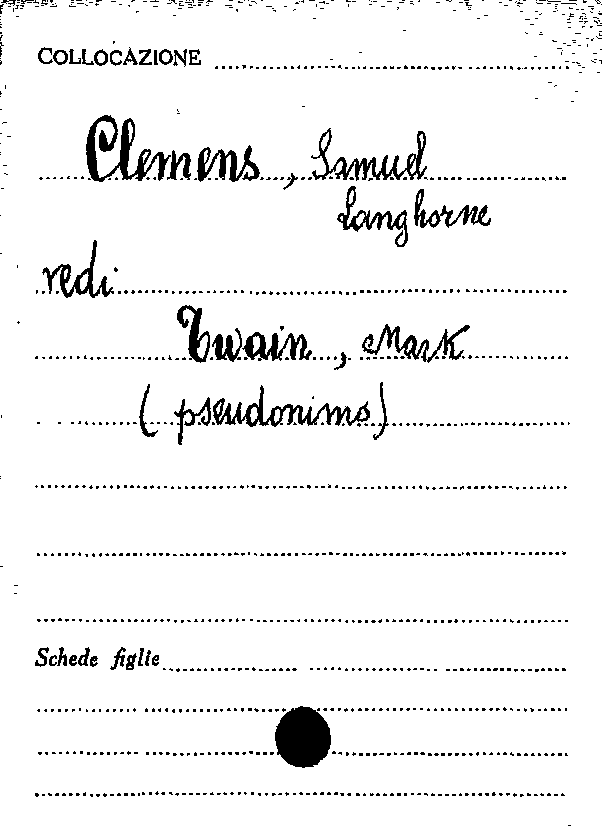 COLLOCAZIONE
Clemens, Samuel
Langhorne
vedi
Twain, Mark
(pseudonimo)
Schede figlie